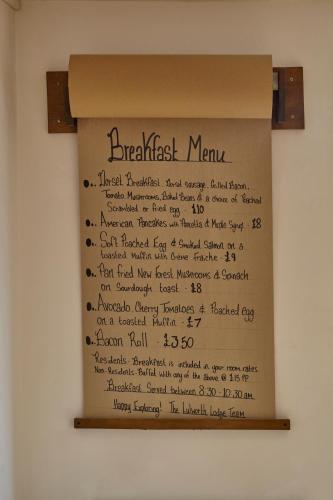 Breakfast Menu
Dorset Breakfast. Dorset sausage, Grilled Bacon,
Tomato, Mushrooms, Baked Beans & a choice of Poached
Scrambled or fried egg - £10
American Pancakes with Pancetta & Maple Syrup - £8
Soft Poached Egg & Smoked Salmon on a
toasted Muffin with Crème Fraiche - £9
Pan fried New Forest Mushrooms & Spinach
on Sourdough toast - £8
Avocado, Cherry Tomatoes & Poached egg
on a toasted Muffin - £7
Bacon Roll - £3.50
Residents - Breakfast is included in your room rates
Non-Residents - Buffet with any of the above @ £15 PP
Breakfast Served between 8:30 - 10:30 am
Happy Exploring! The Lulworth Lodge Team